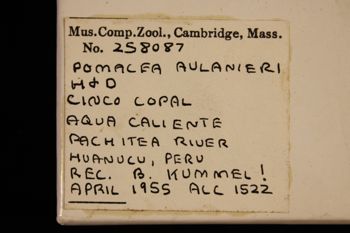 Mus. Comp. Zool., Cambridge, Mass.
No. 258087
POMACEA AULANIERI
H & D
CINCO COPAL
AQUA CALIENTE
PACHITEA RIVER
HUANUCU, PERU
REC. B. KUMMEL!
APRIL 1955 ACC 1522